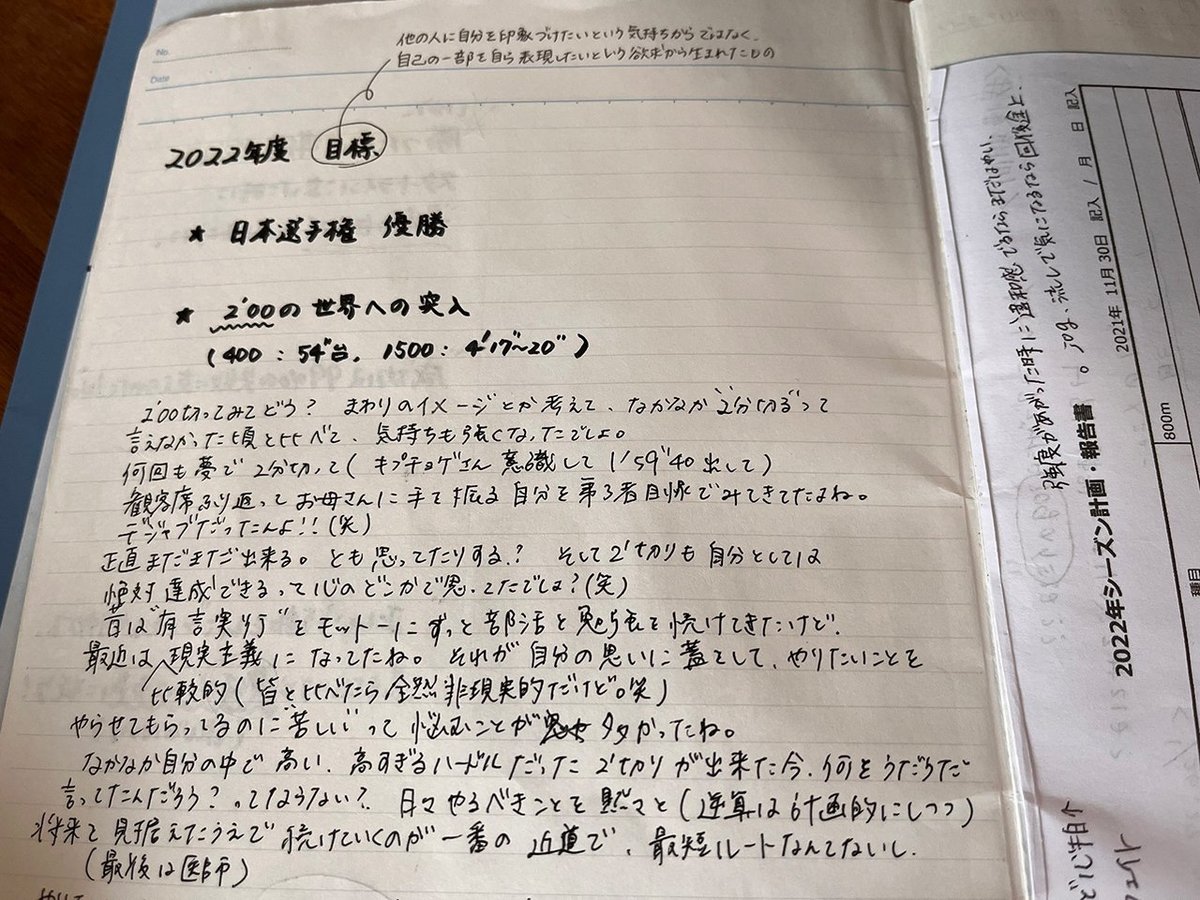 No.
Date
他の人に自分を印象づけたいという気持ちからではなく、
自己の一部を自ら表現したいという欲求から生まれたもの
2022年度 目標
★ 日本選手権 優勝
★ 2'00の世界への突入
(400 : 54"台, 1500 : 4'17"~20")
2'00切ってみてどう? まわりのイメージとか考えて、なかなか"2分切る"って
言えなかった頃と比べて、気持ちも強くなったでしょ。
何回も夢で2分切って(キプチョゲさん意識して1'59"40出して)
観客席ふり返ってお母さんに手を振る自分を第3者目線でみてきてたよね。
デジャブだったんよ!!(笑)
正直まだまだ出来る。とも思ってたりする? そして2'切りも自分としては
絶対達成できるって心のどこかで思ってたでしょ?(笑)
昔は"有言実行"をモットーにずっと部活と勉強を続けてきたけど、
最近は現実主義になってたね。それが自分の思いに蓋をして、やりたいことを
比較的(皆と比べたら全然非現実的だけど。笑)
やらせてもらってるのに"苦しい"って悩むことが多かったね。
なかなか自分の中で高い、高すぎるハードルだった2'切りが出来た今、何をうだうだ
言ってたんだろう?ってならない? 日々やるべきことを黙々と(逆算は計画的にしつつ)
将来を見据えたうえで続けていくのが一番の近道で、最短ルートなんてないし。
(最後は医師)
強度があがった時に違和感でるならまだはやい、
。jog、流しで気になるなら回復全上、
2022年シーズン計画・報告書
2021年 11月 30日 記入 / 月 日 記入
種目
800m